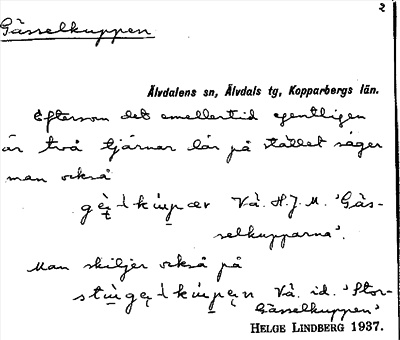 2
Gässelkuppen
Älvdalens sn, Älvdals tg, Kopparbergs län.
Eftersom det emellertid egentligen
är två tjärnar här på stället säger
man också
Vå. H.J.M. 'Gäs-
selkupparna'.
Man skiljer också på
Vå. id. 'Stor-
Gässelkuppen'
HELGE LINDBERG 1937.